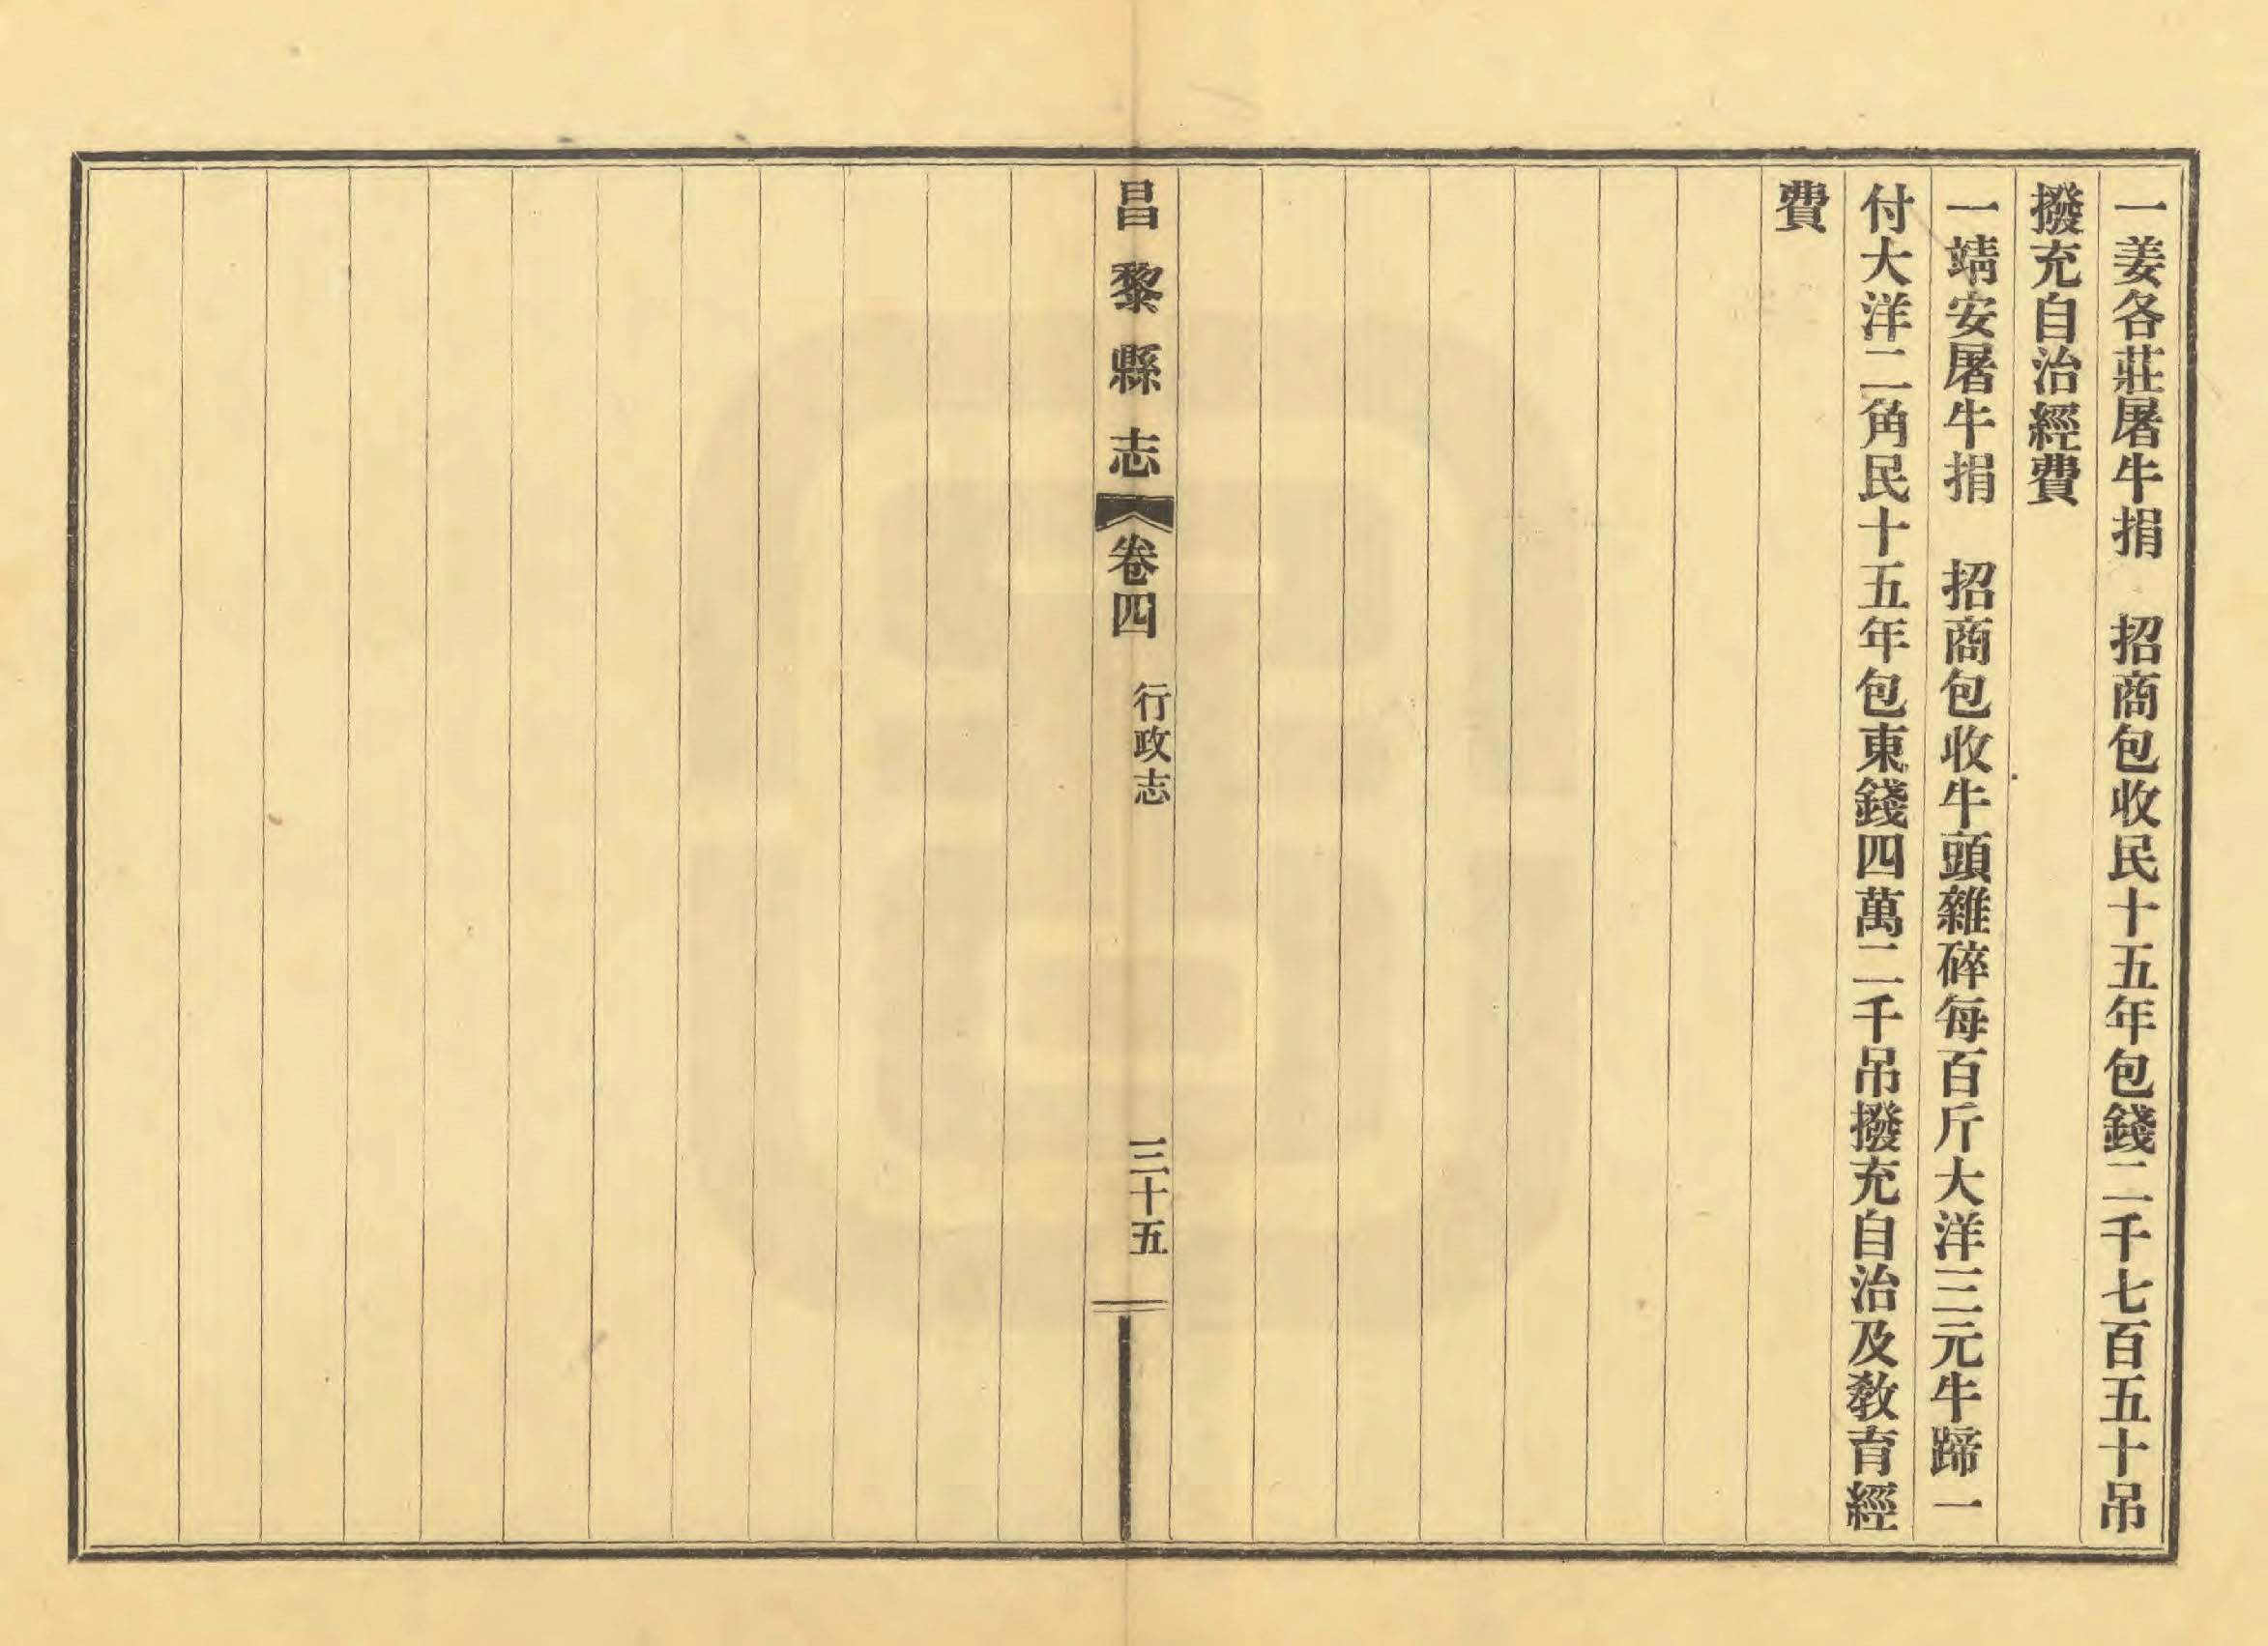 一姜各莊屠牛捐　招商包收民十五年包錢二千七百五十吊
撥充自治經費
一靖安屠牛捐　招商包收牛頭雜碎每百斤大洋三元牛蹄一
付大洋二角民十五年包東錢四萬二千吊撥充自治及教育經
費
昌黎縣志　卷四　行政志　三十五